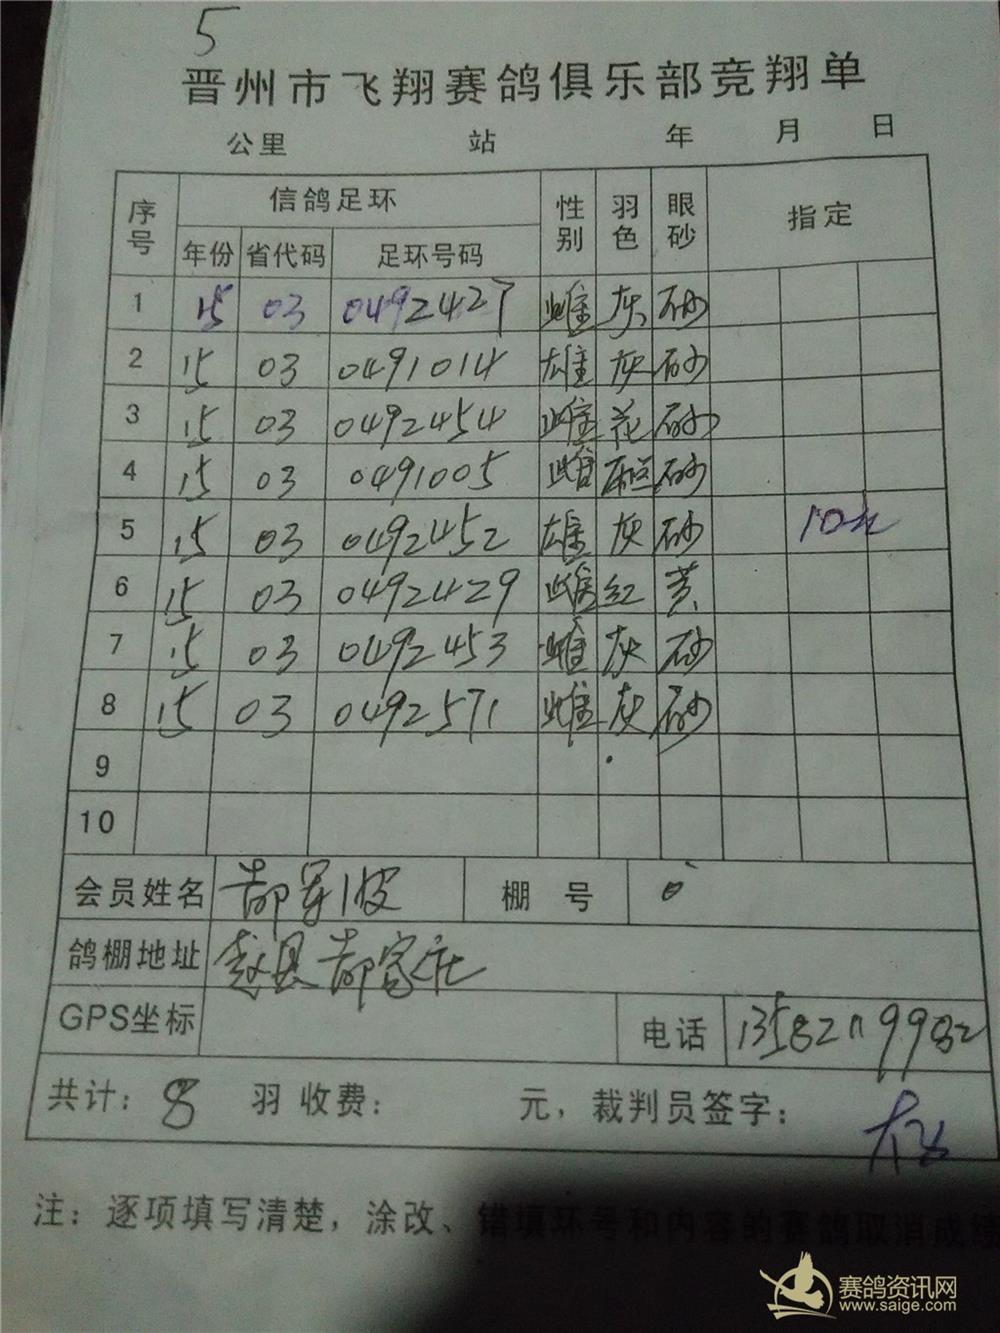 5
晋州市飞翔赛鸽俱乐部竞翔单
公里 站 年 月 日
序号 信鸽足环 性别 羽色 眼砂 指定
年份 省代码 足环号码
1 15 03 0492427 雌 灰 砂
2 15 03 0491014 雄 灰 砂
3 15 03 0492454 雌 花 砂
4 15 03 0491005 雌 砂
5 15 03 0492452 雄 灰 砂 10元
6 15 03 0492429 雌 红 黄
7 15 03 0492453 雌 灰 砂
8 15 03 0492571 雌 灰 砂
9
10
会员姓名 郝军波 棚号
鸽棚地址 赵县郝家庄
GPS坐标 电话 13582119982
共计: 8 羽 收费: 元, 裁判员签字:
注: 逐项填写清楚, 涂改、错填环号和内容的赛鸽取消成绩
赛鸽资讯网
www.saige.com